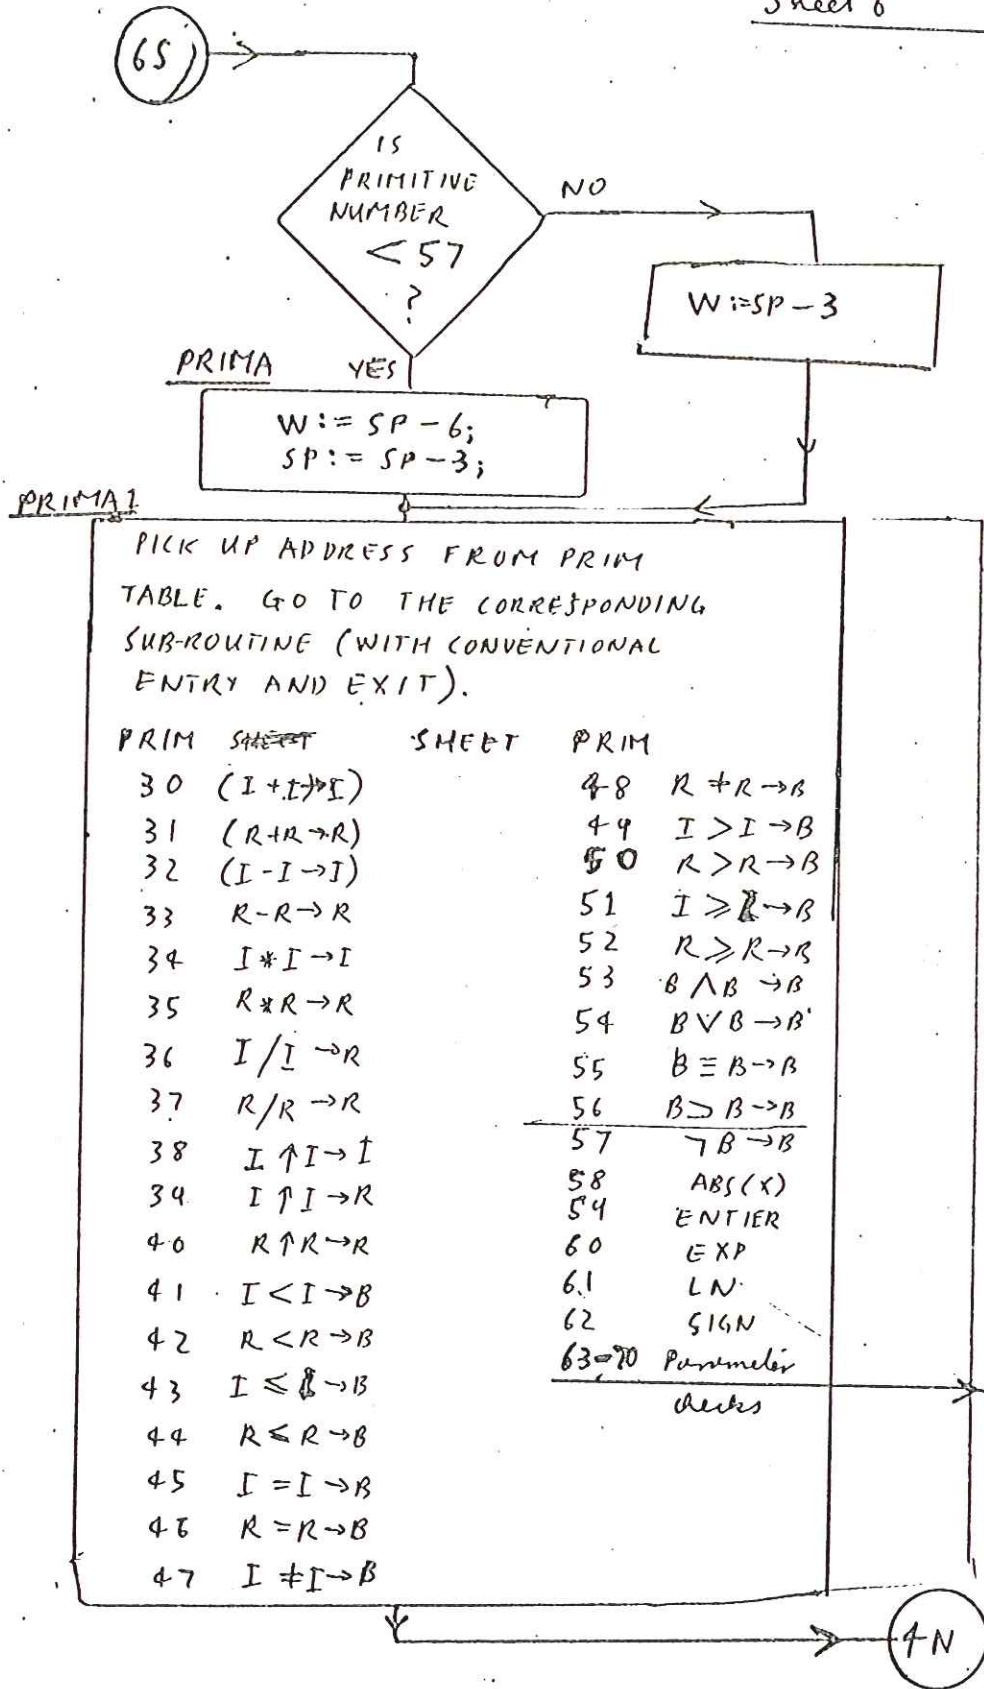 Sheet 6
6S
IS
PRIMITIVE
NUMBER
< 57
?
NO
W:=SP-3
YES
PRIMA
W:= SP-6;
SP:= SP-3;
PRIMA1
PICK UP ADDRESS FROM PRIM
TABLE. GO TO THE CORRESPONDING
SUB-ROUTINE (WITH CONVENTIONAL
ENTRY AND EXIT).
PRIM SHEET SHEET PRIM
30 (I+I→I)
31 (R+R→R)
32 (I-I→I)
33 R-R→R
34 I*I→I
35 R*R→R
36 I/I→R
37 R/R→R
38 I↑I→I
39 I↑I→R
40 R↑R→R
41 I<I→B
42 R<R→B
43 I≤I→B
44 R≤R→B
45 I=I→B
46 R=R→B
47 I≠I→B
48 R≠R→B
49 I>I→B
50 R>R→B
51 I≥I→B
52 R≥R→B
53 B∧B→B
54 B∨B→B
55 B≡B→B
56 B⊃B→B
57 ¬B→B
58 ABS(X)
59 ENTIER
60 EXP
61 LN
62 SIGN
63-70 Parameter
checks
4N